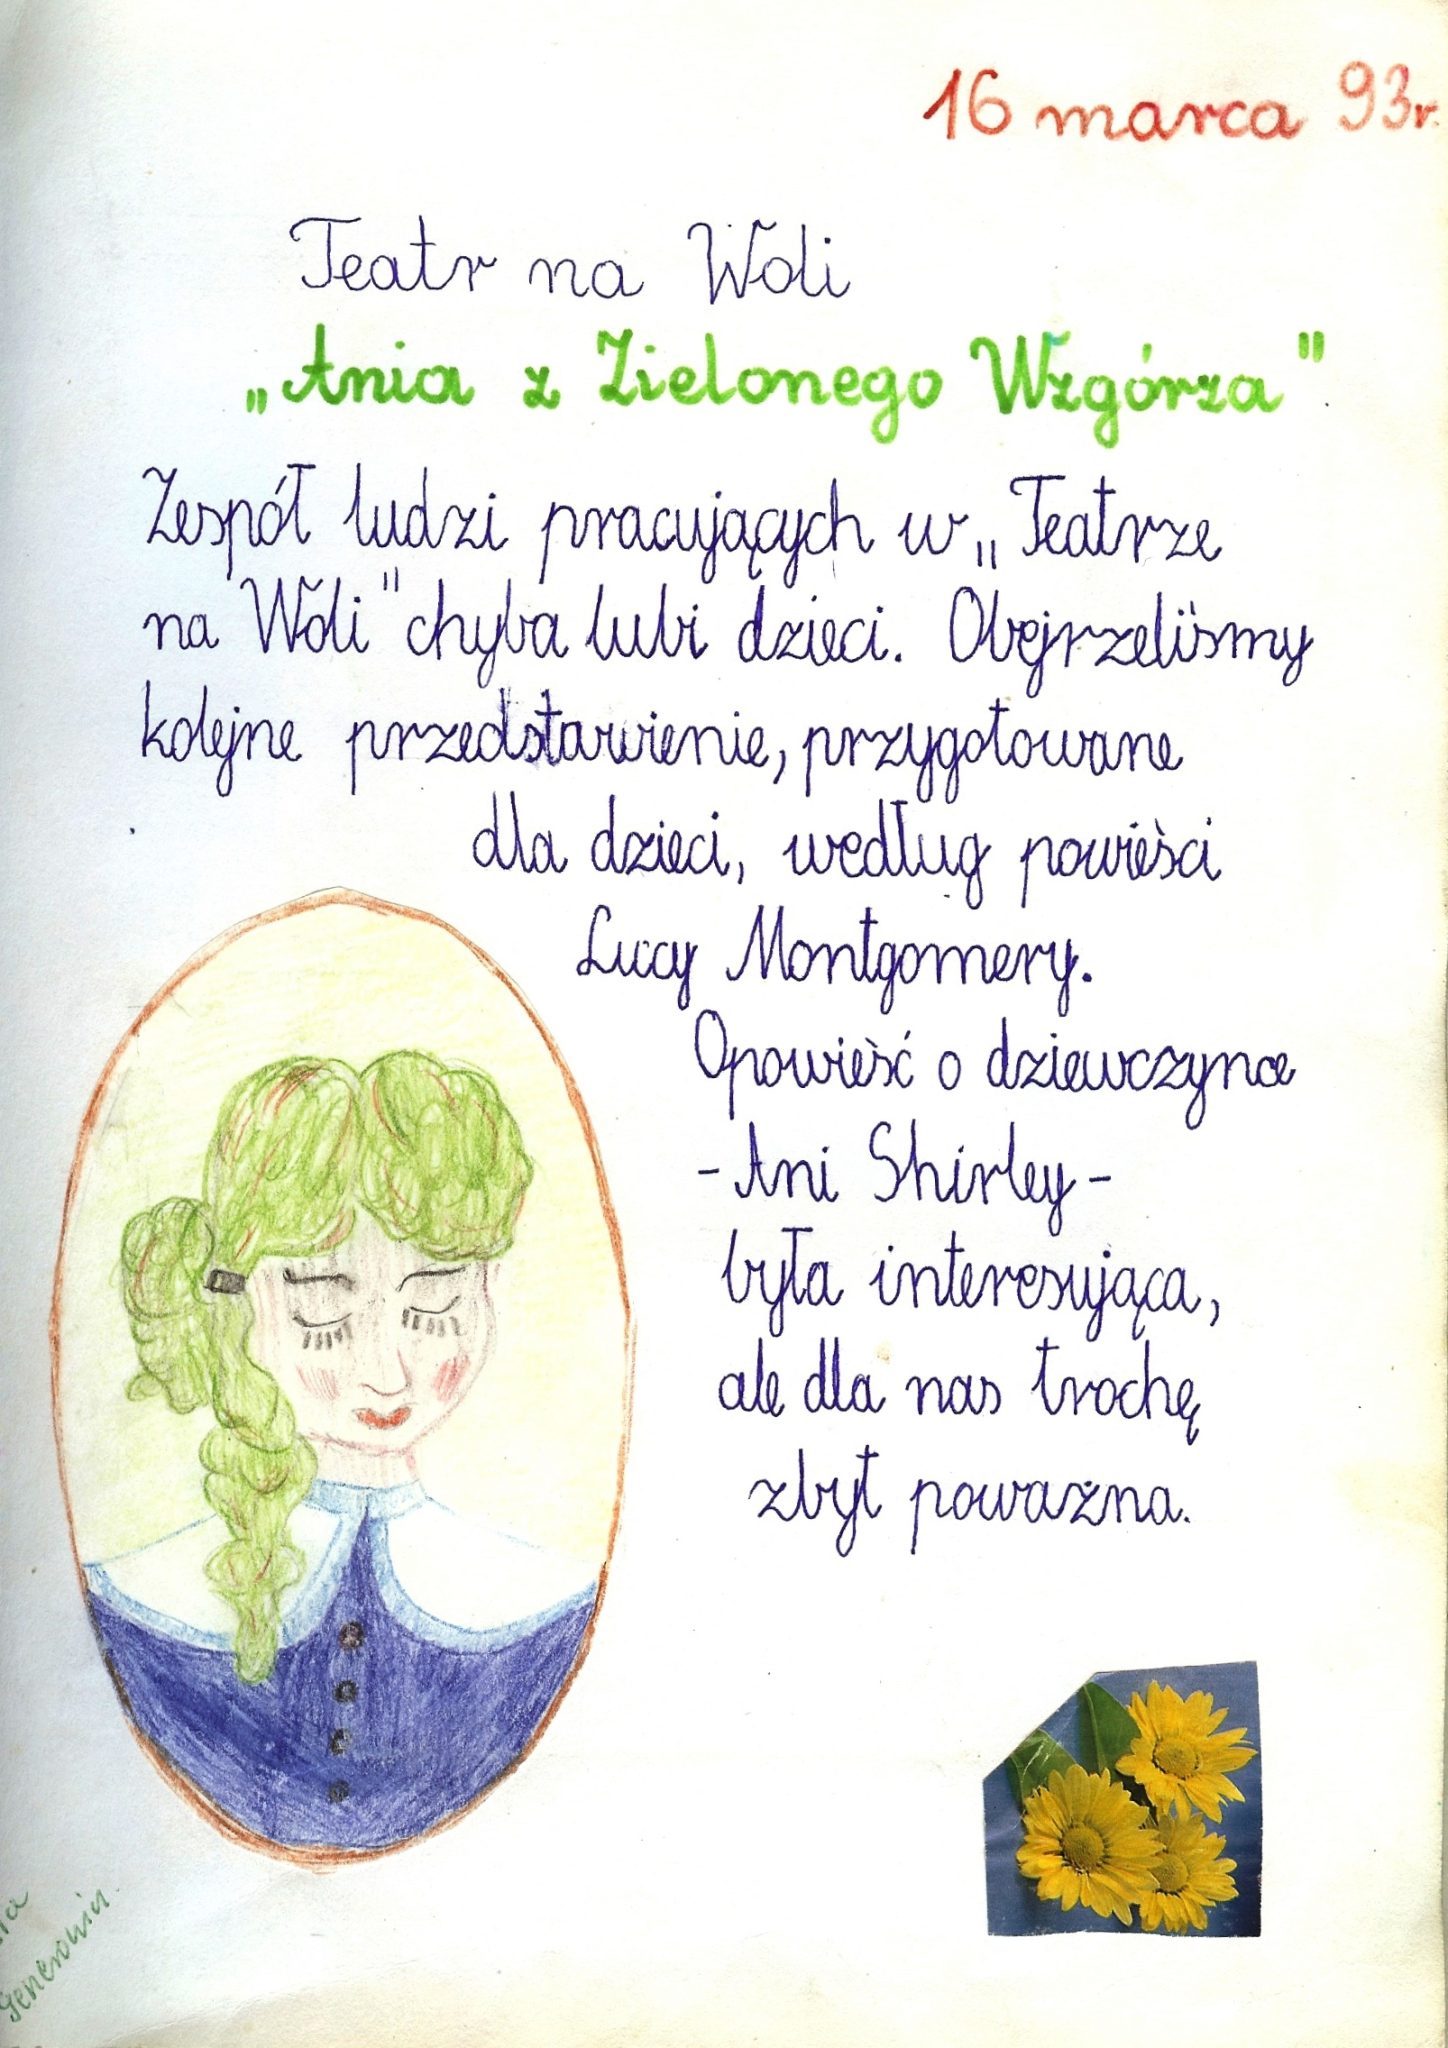 16 marca 93r.
Teatr na Woli
„Ania z Zielonego Wzgórza"
Zespół ludzi pracujących w „Teatrze
na Woli" chyba lubi dzieci. Obejrzeliśmy
kolejne przedstawienie, przygotowane
dla dzieci, według powieści
Lucy Montgomery.
Opowieść o dziewczynce
- Ani Shirley -
była interesująca,
ale dla nas trochę
zbyt poważna.